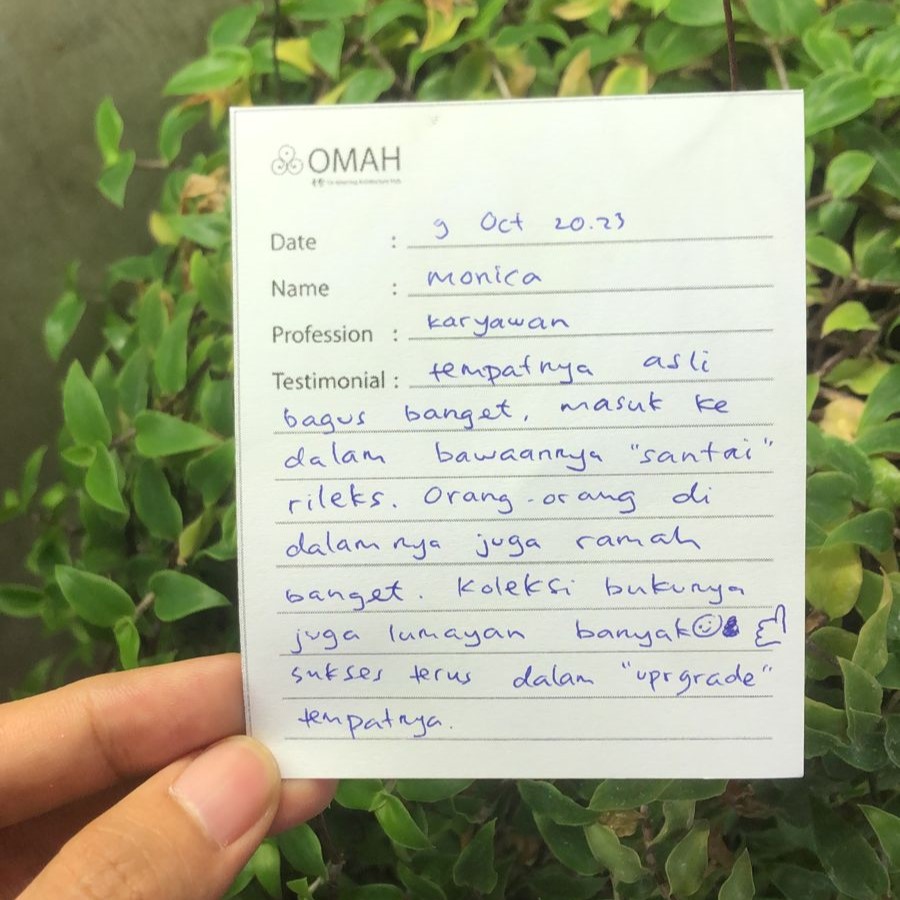 OMAH
Date : 9 Oct 20.23
Name : monica
Profession : karyawan
Testimonial : tempatnya asli
bagus banget, masuk ke
dalam bawaannya "santai"
rileks. Orang-orang di
dalamnya juga ramah
banget. Koleksi bukunya
juga lumayan banyak
sukses terus dalam "uprgrade"
tempatnya.